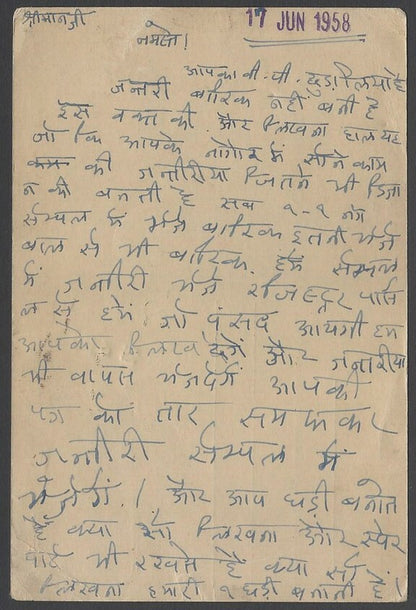 श्रीमानजी
17 JUN 1958
नमस्ते!
आपका वी. पी. छुड़ा लिया है
जनीरी बारिक नही बनी है
इस वक्त की और लिखना हाल यह
जो कि आपके नागोर में सोने काम
की जनीरीया जितने भी डिजा
न की बनती है सब १-१ नंग
सेम्पल में भेजे बारिक इतनी भेजे
बाल से भी बारिक. हमें सेम्पल
में जनीरी भेजे रजिस्ट्रर पार्स
ल से हमें। जो पंसद आयगी हम
आपको लिख देंगें और जनारीया
भी वापस भेजदेगें आपको
पत्र को तार समझकर
जनीरी सेम्पल में
भेजेगें। और आप घड़ी बनाते
है क्या सो लिखना और स्पेर
पार्ट भी रखते है क्या सो
लिखना हमारी १ घड़ी बनानी है।